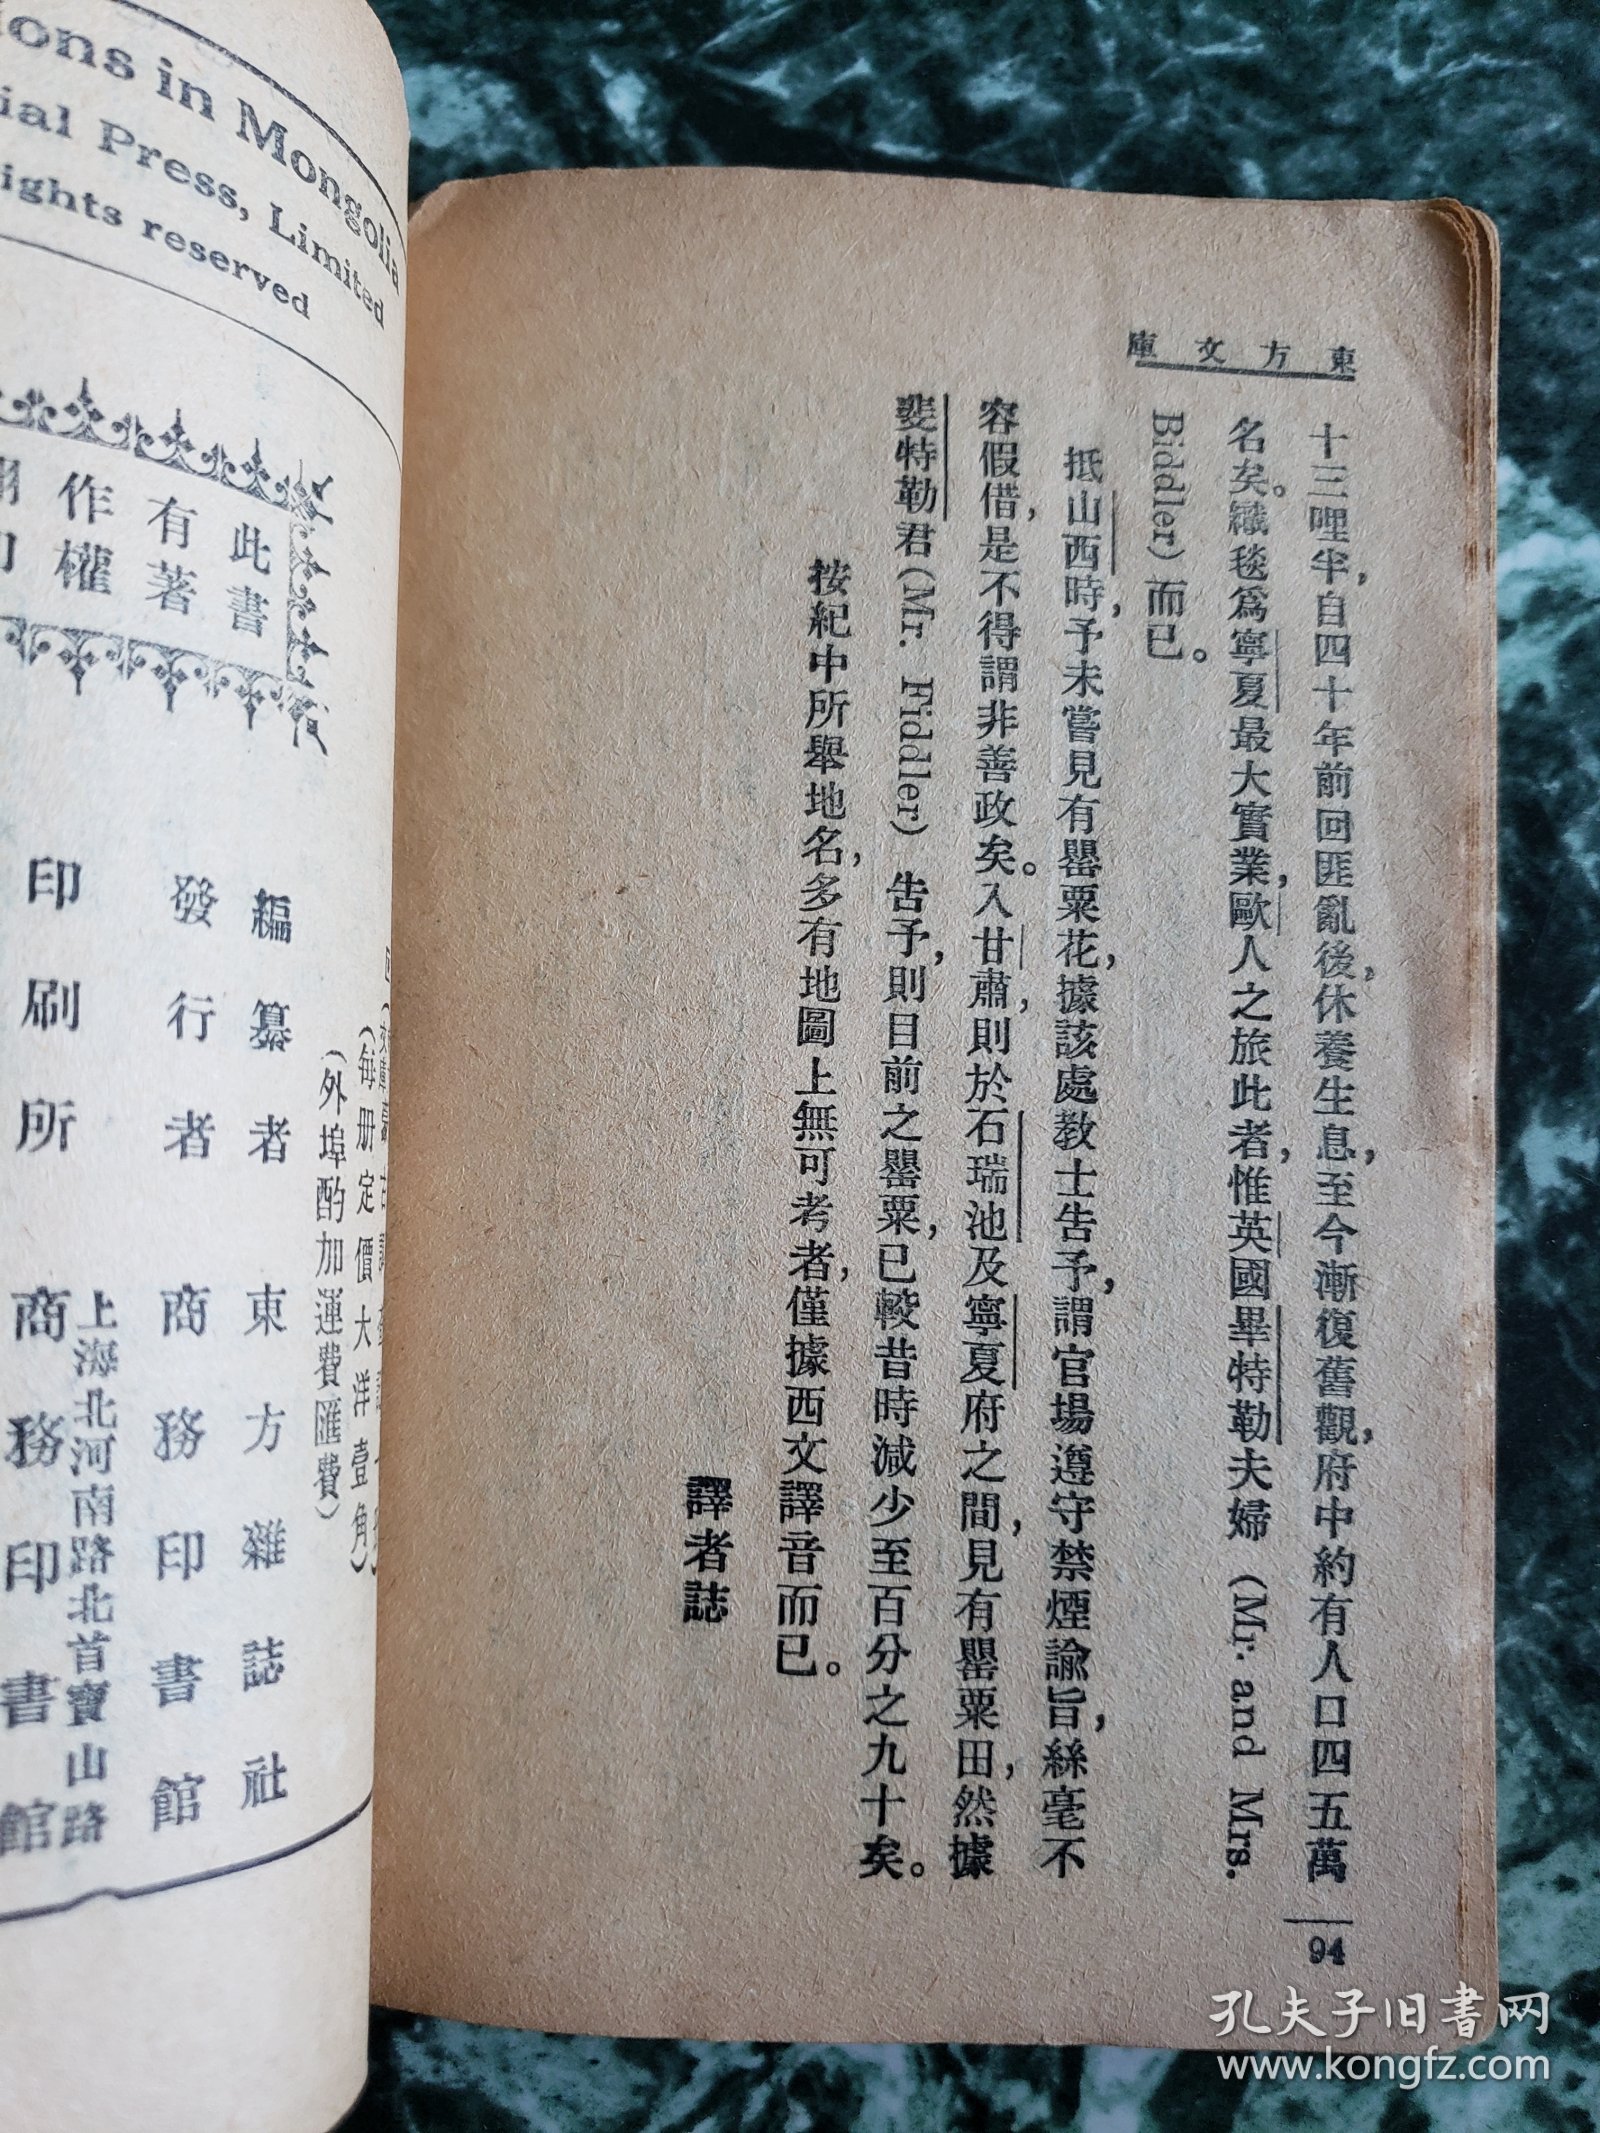 東方文庫
十三哩半，自四十年前回匪亂後，休養生息，至今漸復舊觀，府中約有人口四五萬
名矣。織毯爲寧夏最大實業，歐人之旅此者，惟英國畢特勒夫婦 (Mr. and Mrs.
Biddler) 而已。
抵山西時，予未嘗見有罌粟花，據該處教士告予，謂官場遵守禁煙諭旨，絲毫不
容假借，是不得謂非善政矣。入甘肅，則於石瑞池及寧夏府之間，見有罌粟田，然據
斐特勒君 (Mr. Fiddler) 告予，則目前之罌粟，已較昔時減少至百分之九十矣。
按紀中所舉地名，多有地圖上無可考者，僅據西文譯音而已。
譯者誌
94
ions in Mongolia
ial Press, Limited
ights reserved
此書
有著
作權
翻印
(每册定價大洋壹角)
(外埠酌加運費匯費)
編纂者 東方雜誌社
發行者 商務印書館
上海北河南路北首寶山路
印刷所 商務印書館
孔夫子旧书网
www.kongfz.com